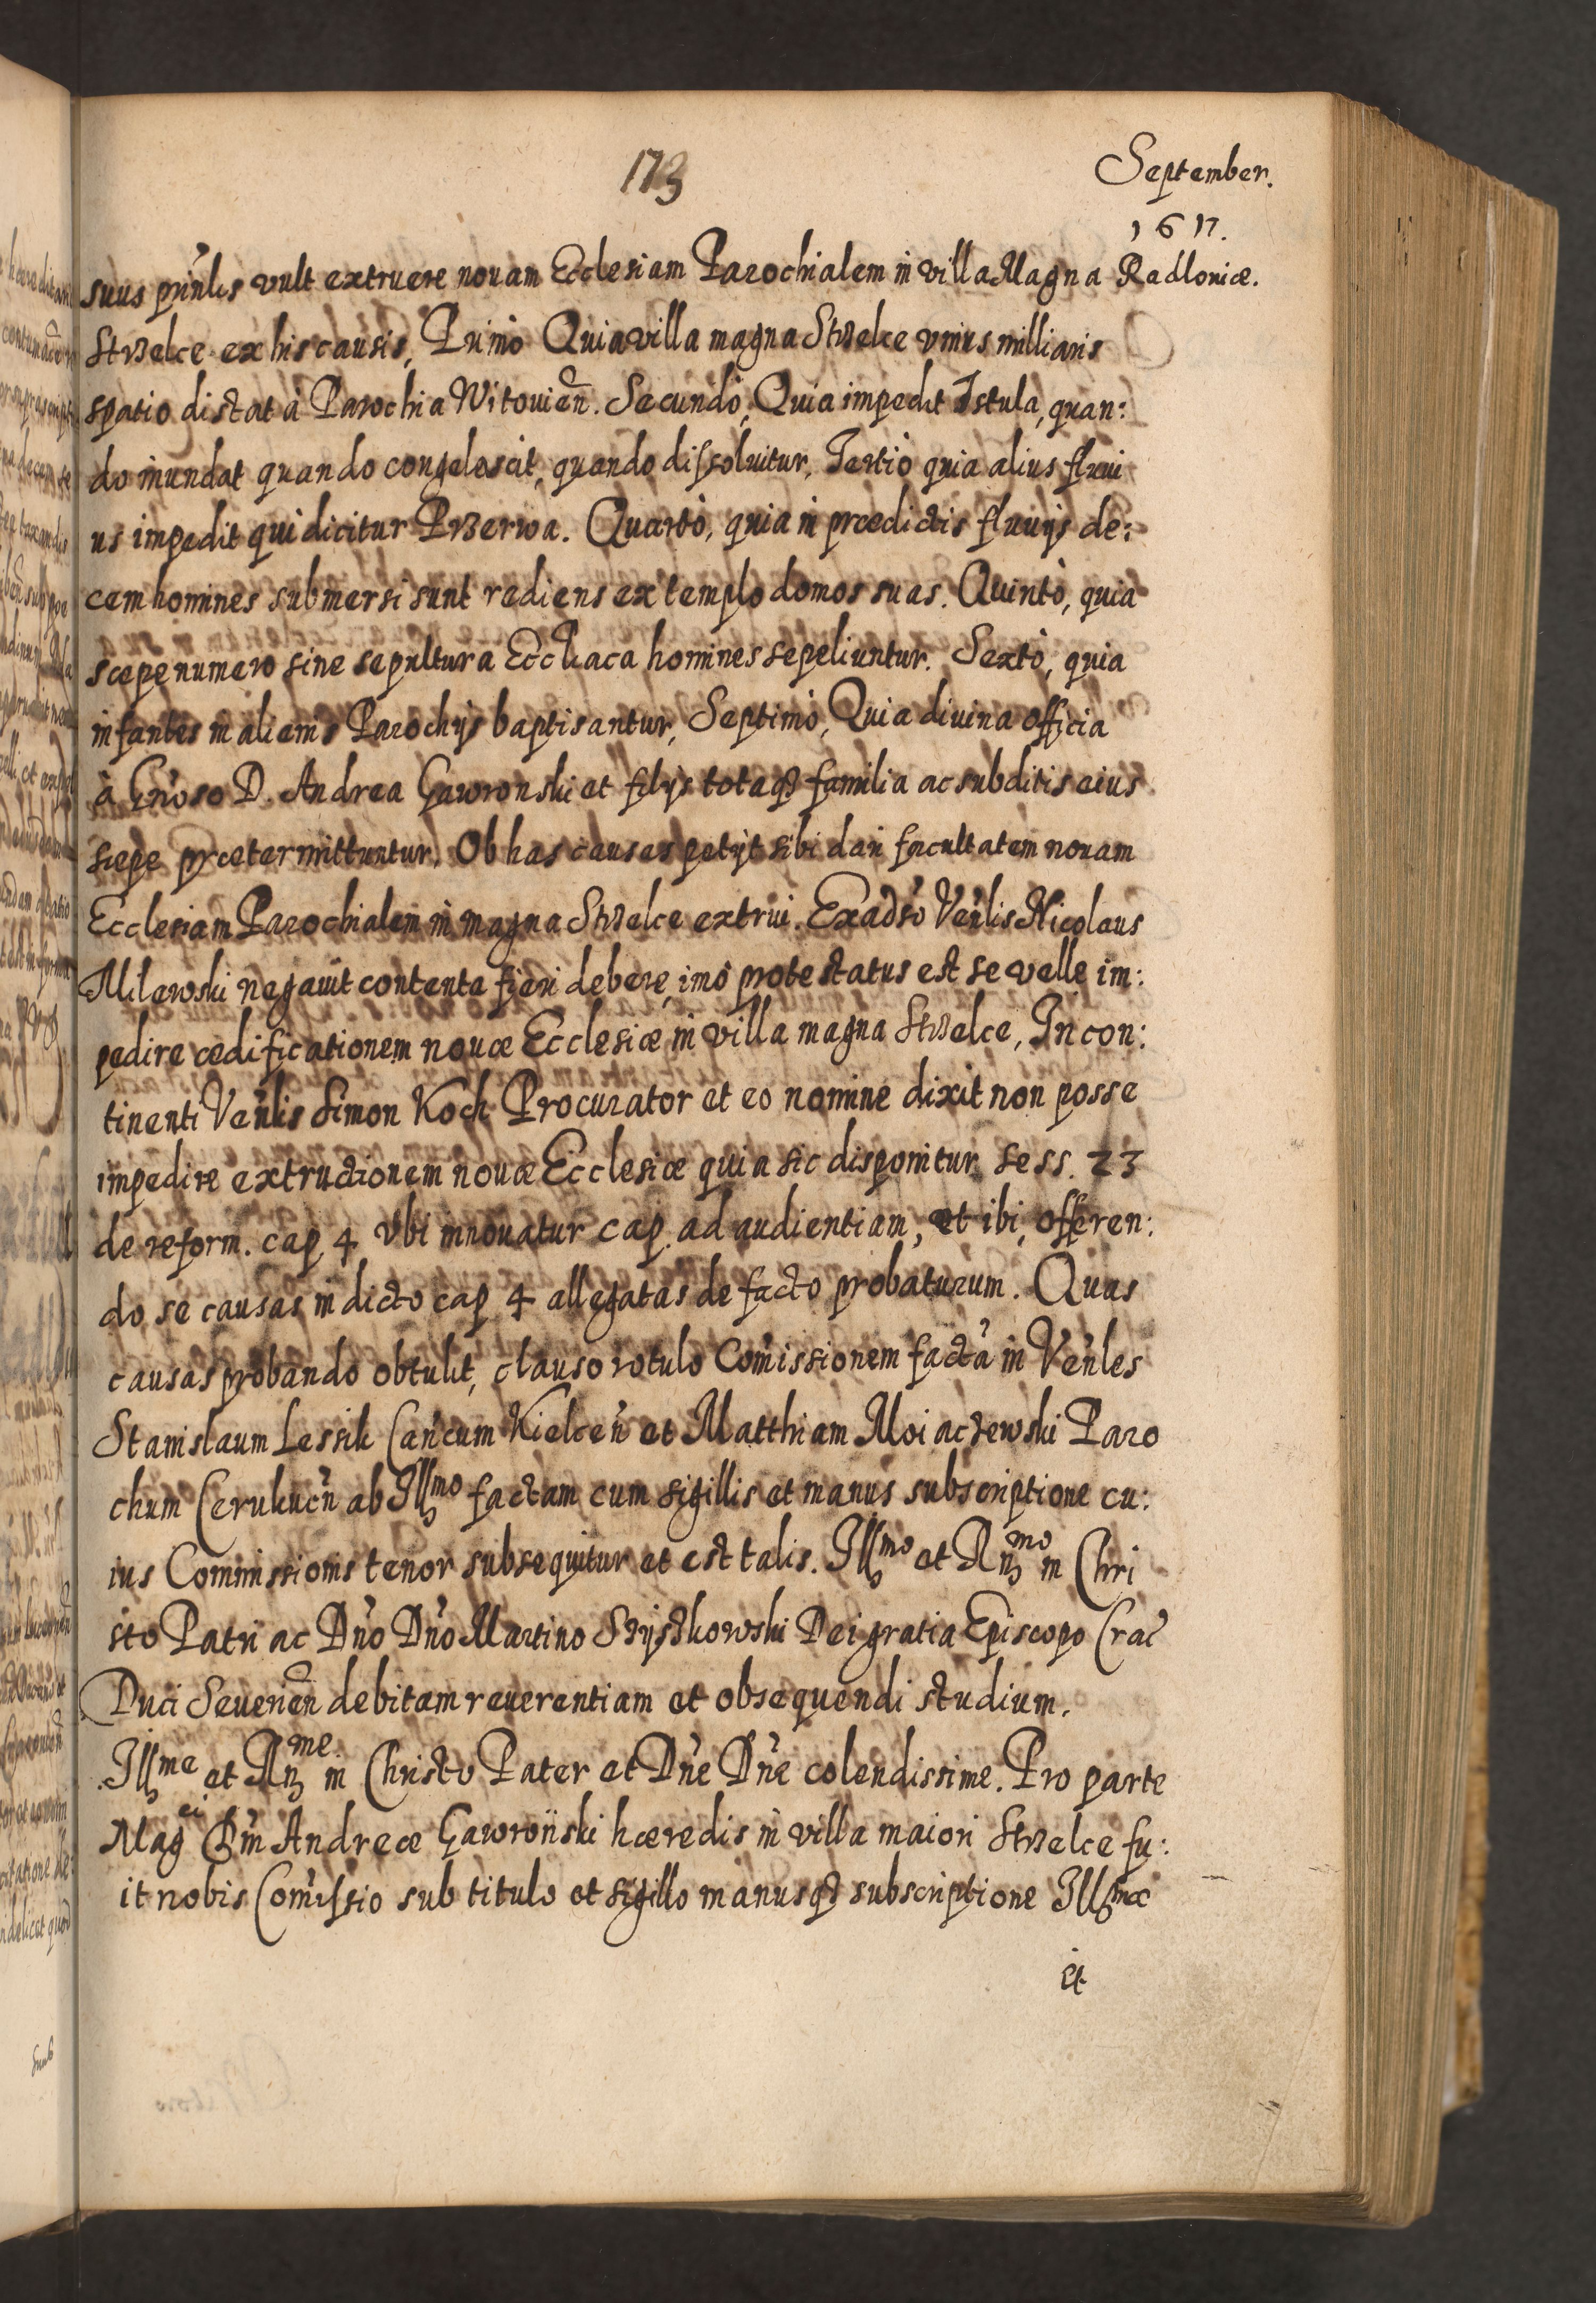 173
September.
1617.
Radloniæ.
suus prinles vult extruere nouam Ecclesiam Parochialem in villa Magna
Strzelce ex his causis, Primò Quia villa magna Strzelce vnius milliaris
spatio distat à Parochia Witouien. Secundò, Quia impedit Istula, quan:
do inundat quando congelescit, quando dissoluitur, Tertiò quia alius fluui
us impedit qui dicitur Przerwa. Quartò, quia in prædictis fluuijs de:
cem homines submersi sunt rediens ex templo domos suas. Quintò, quia
sæpenumero sine sepultura Eccliaca homines sepeliuntur. Sextò, quia
infantes in alienis Parochijs baptisantur, Septimò, Quia diuina officia
à Gnoso D. Andrea Gawronski et filijs totaq3 familia ac subditis eius
sæpe prætermittuntur. Ob has causas petijt sibi dari facultatem nouam
Ecclesiam Parochialem in magna Strzelce extrui. Ex adso Venlis Nicolaus
Milewski negauit contenta fieri debere, imò protestatus est se velle im:
pedire ædificationem nouæ Ecclesiæ in villa magna Strzelce, In con:
tinenti Venlis Simon Koch Procurator et eo nomine dixit non posse
impedire extructionem nouæ Ecclesiæ quia sic disponitur sess. 23
de reform. cap. 4 Vbi innouatur cap. ad audientiam, et ibi, offeren:
do se causas in dicto cap 4 allegatas de facto probaturum. Quas
causas probando obtulit, clauso rotulo Comissionem factá in Venles
Stanislaum Lessik Cancum Kielcen et Matthiam Moiaczewski Paro
chum Cerukucn ab Illmo factam cum sigillis et manus subscriptione cu:
ius Commissionis tenor subsequitur et est talis. Illmo et Rnmo in Chri
sto Patri ac Dno Dno Martino Szyszkowski Dei gratia Episcopo Crac
Duci Seuerien debitam reuerentiam et obsequendi studium.
Illme et Rnme in Christo Pater et Dne Dne colendissime. Pro parte
Magci Dni Andreæ Gawroński hæredis in villa maiori Strzelce fu:
it nobis Comissio sub titulo et sigillo manusq3 subscriptione Illmæ
et